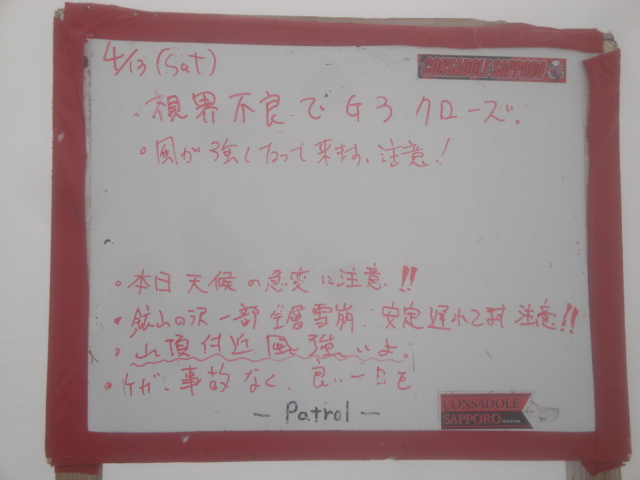 4/13 (Sat)
CONSADOLE SAPPORO
・視界不良で G3 クローズ。
・風が強くなって来ます。注意!
・本日 天候の急変に注意!!
・鉱山の沢一部全層雪崩。安定遅れてます 注意!!
・山頂付近風強いよ。
・ケガ、事故なく、良い一日を
- Patrol -
CONSADOLE
SAPPORO